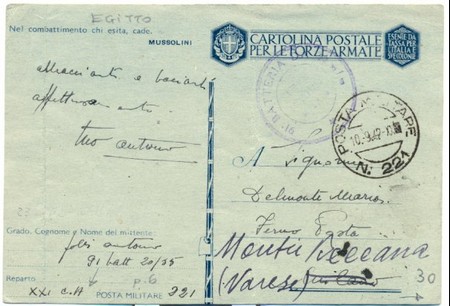 EGITTO
Nel combattimento chi esita, cade.
MUSSOLINI
CARTOLINA POSTALE
PER LE FORZE ARMATE
ESENTE DA
TASSA PER
L'ITALIA E
SUE COLONIE
abbracciante e baciante
affettuosamente
tuo antonio
91ª BATTERIA
POSTA MILITARE
10.9.42
N. 221
A Signorina
Delmonte Maria
Fermo Posta
Monte Beccana
(Varese)
Milano
23
Grado, Cognome e Nome del mittente
antonio
91 batt 20/35
Reparto
p.6
XXI C.A
POSTA MILITARE 221
30